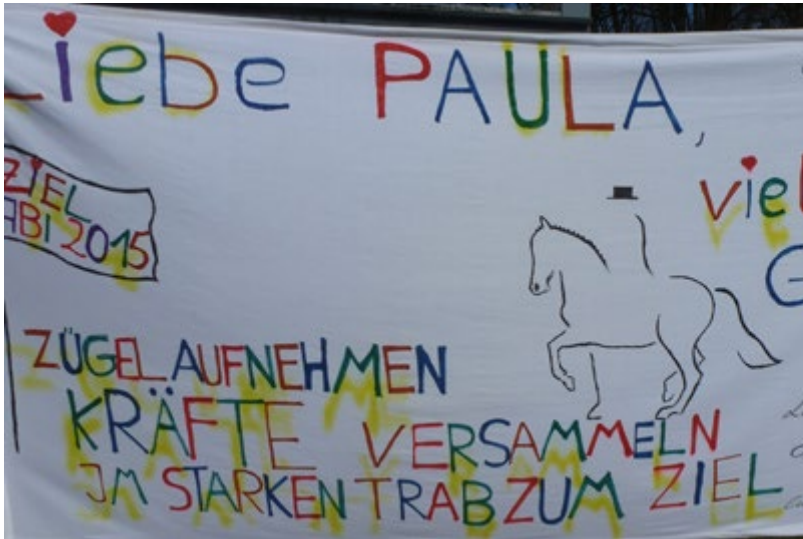 Liebe PAULA,
ZIEL
ABI 2015
ZÜGEL AUFNEHMEN
KRÄFTE VERSAMMELN
IM STARKEN TRAB ZUM ZIEL